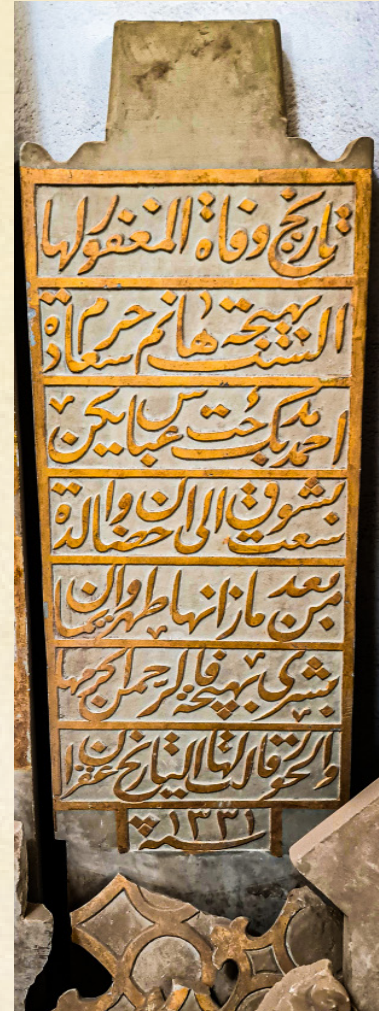 تاريخ وفاة المغفور لها
الست بهيجة هانم حرم سعادة
احمد مدحت بك عباس يكن
سعت بشوق الى احضان والدة
من بعد ما زانها طهر وايمان
بشرى بهيجة فالرحمن
والحور قالت لها التاريخ غفران
سنة ١٣٣١